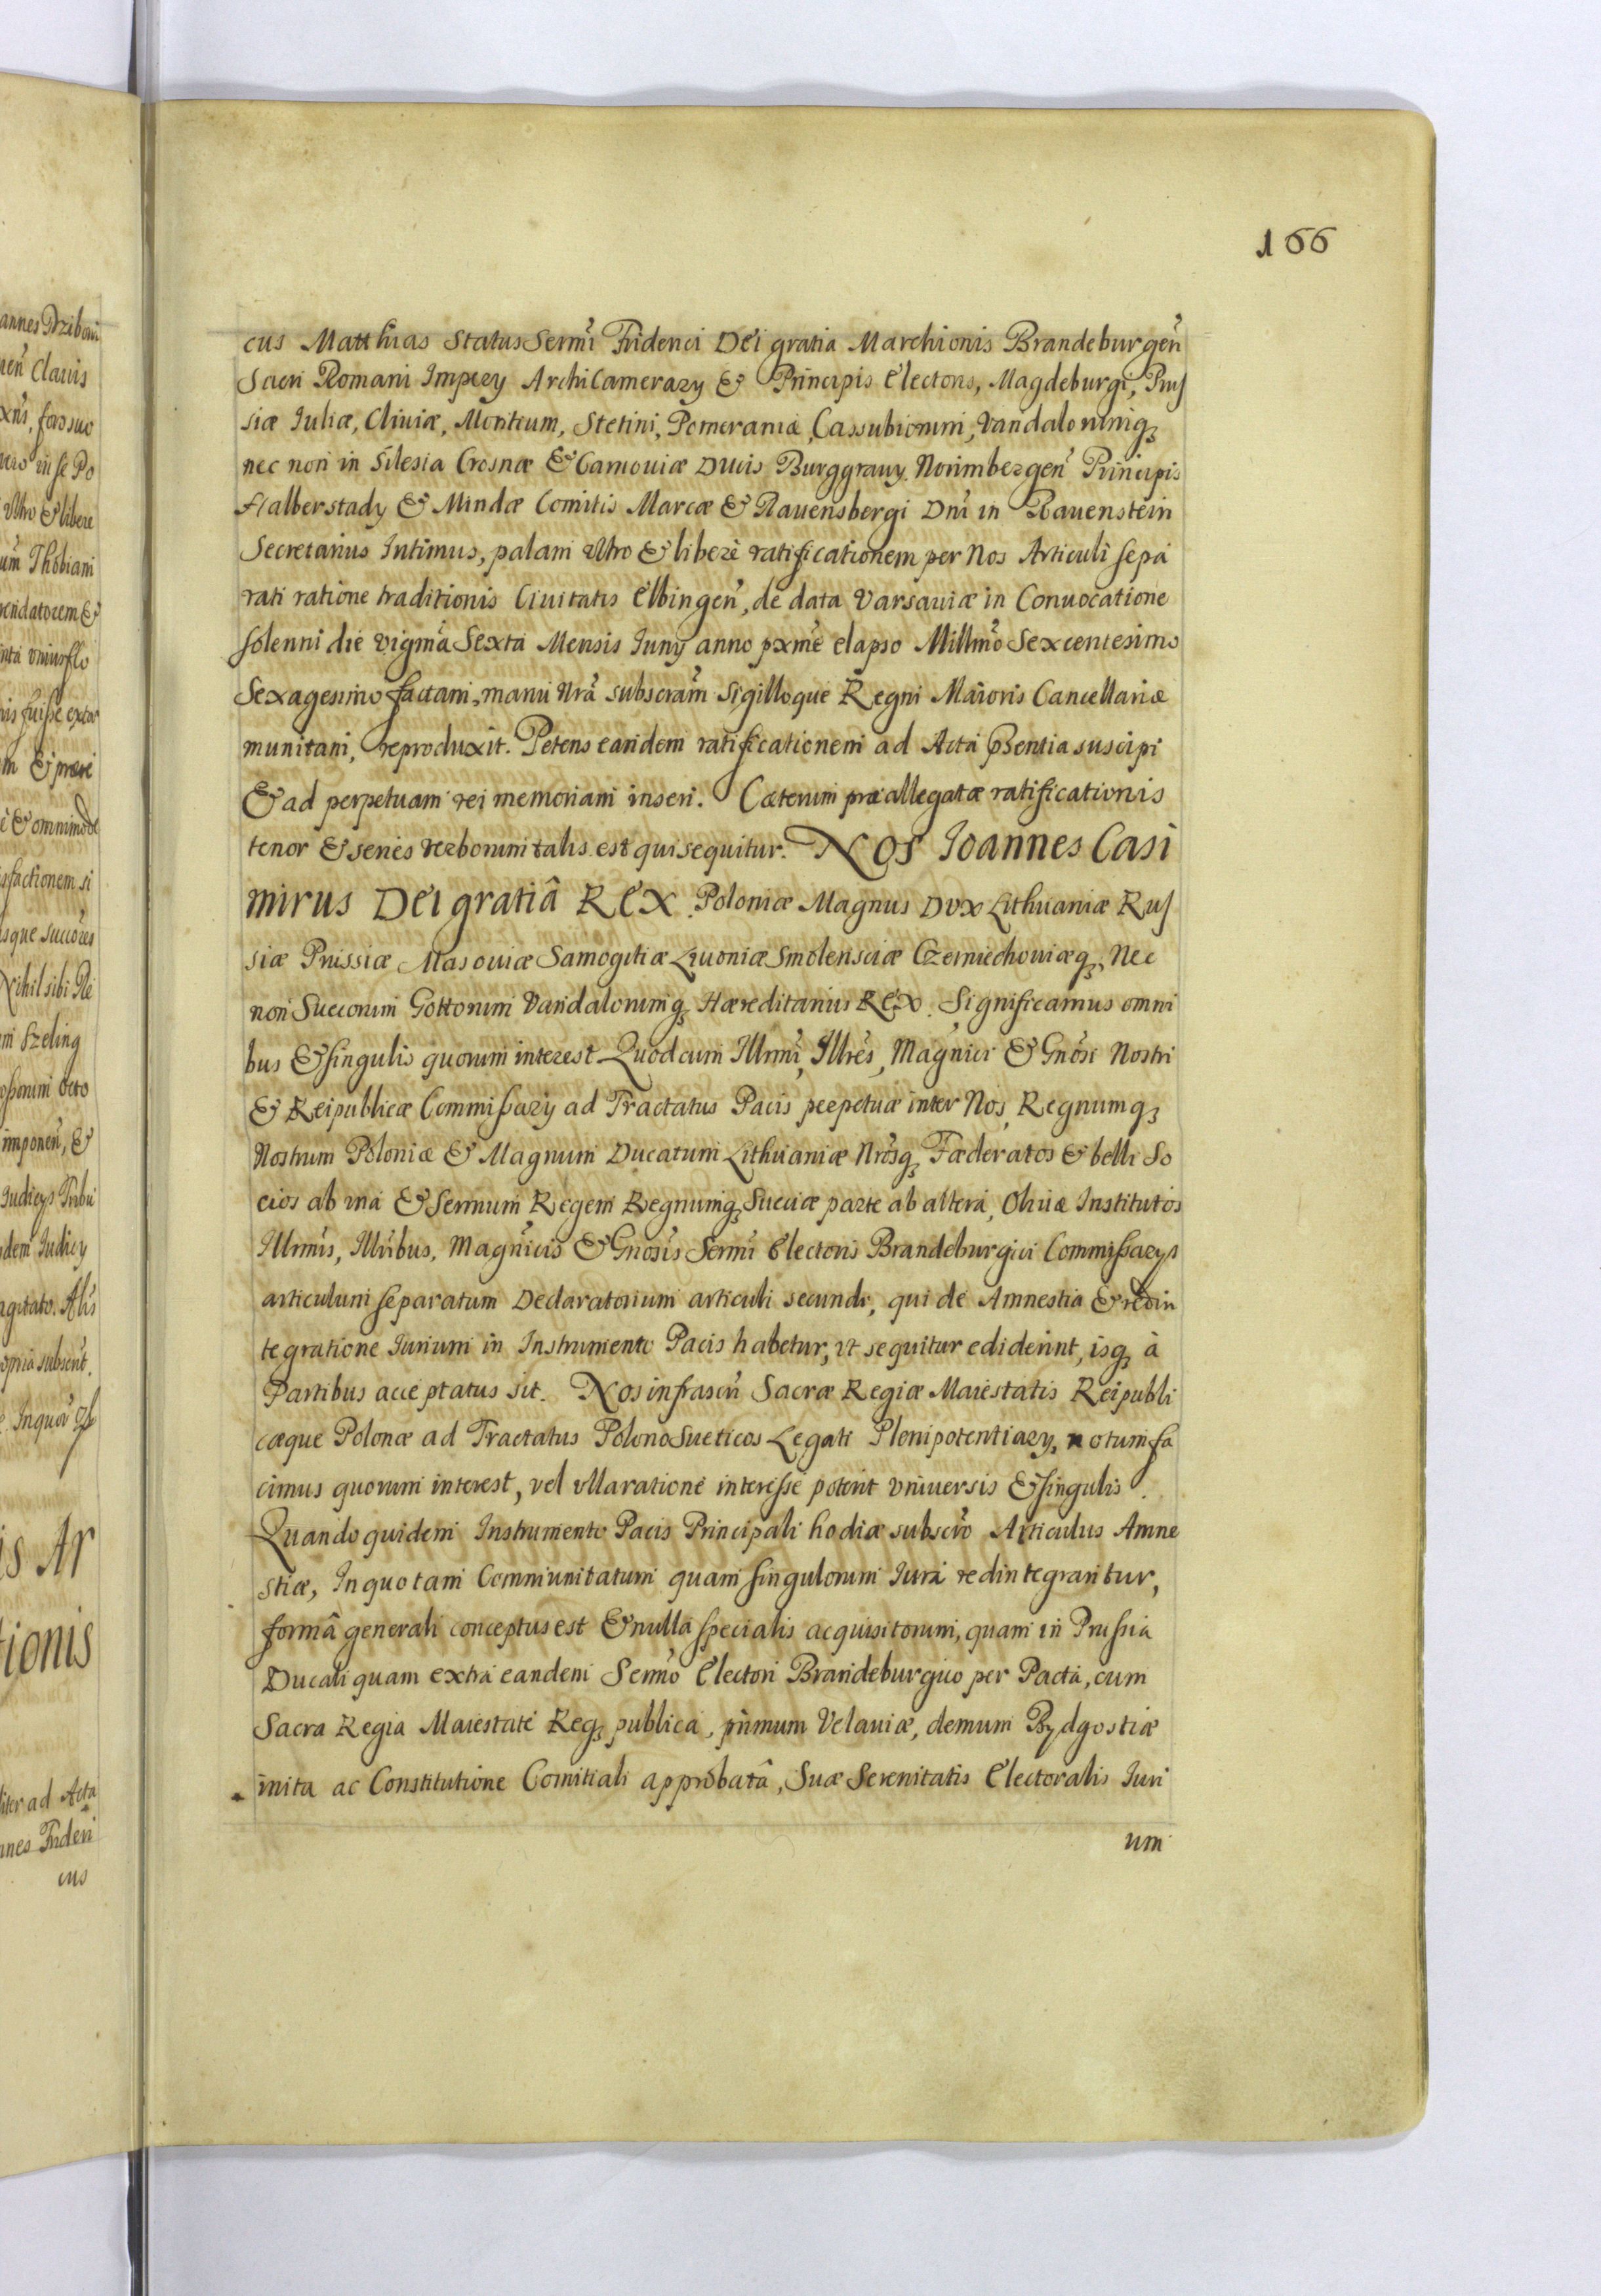 166
cus Matthias Status Sermi Friderici Dei gratia Marchionis Brandeburgen
Sacri Romani Impery ArchiCamerary & Principis Electoris, Magdeburgi, Prus
siæ Iuliæ, Cliviæ, Montium, Stetini, Pomeraniæ, Cassubiorum, Vandalorumq
nec non in Silesia Crosnæ & Carnoviæ Ducis Burggravy Norimbergen Principis
Halberstady & Mindæ Comitis Marcæ & Ravensbergi Dni in Ravenstein
Secretarius Intimus, palam vltro & liberè ratificationem per Nos Articuli sepa
rati ratione traditionis Civitatis Elbingen, de data Varsaviæ in Convocatione
solenni die vigma Sexta Mensis Iuny anno pxme elapso Millmo Sexcentesimo
Sexagesimo factam, manu Nra subscram sigilloque Regni Maioris Cancellariæ
munitam, reproduxit. Petens eandem ratificationem ad Acta pæsentia suscipi
& ad perpetuam rei memoriam inseri. Cæterum præallegatæ ratificationis
tenor & series verborum talis est qui sequitur. Nos Ioannes Casi
mirus Dei gratiâ Rex Poloniæ Magnus Dux Lithuaniæ Rus
siæ Prussiæ Masoviæ Samogitiæ Livoniæ Smolensciæ Czerniechoviæq, Nec
non Suecorum Gottorum Vandalorumq Hæreditarius Rex. Significamus omni
bus & singulis quorum interest Quod cum Illrmi, Illres, Magnici & Gnosi Nostri
& Reipublicæ Commissary ad Tractatus Pacis perpetuæ inter Nos, Regnumq
Nostrum Poloniæ & Magnum Ducatum Lithuaniæ Nrosq Fæderatos & belli So
cios ab vna & Sermum Regem Regnumq Sueciæ parte ab altera, Olivæ Institutos
Illrmis, Illribus, Magnicis & Gnosis Sermi Electoris Brandeburgici Commissarys
articulum separatum Declaratorium articuli secundi, qui de Amnestia & redin
tegratione Iurium in Instrumento Pacis habetur, vt sequitur ediderint, isq à
Partibus acceptatus sit. Nos infrascri Sacræ Regiæ Maiestatis Reipubli
cæque Polonæ ad Tractatus PolonoSueticos Legati Plenipotentiary, notum fa
cimus quorum interest, vel vlla ratione interesse poterit vniversis & singulis.
Quandoquidem Instrumento Pacis Principali hodiæ subscro Articulus Amne
stiæ, In quo tam Communitatum quam singulorum Iura redintegrantur,
formâ generali conceptus est & nulla specialis acquisitorum, quam in Prussia
Ducali quam extra eandem Sermo Electori Brandeburgico per Pacta, cum
Sacra Regia Maiestate Reqpublica, primum Velaviæ, demum Bydgostiæ
inita ac Constitutione Comitiali approbatâ, Suæ Serenitatis Electoralis Iuri
um